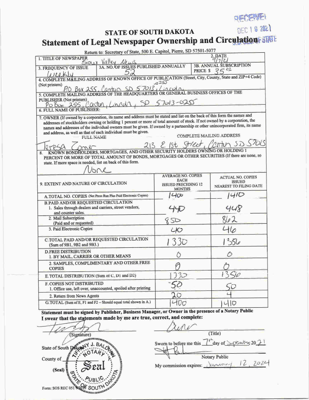 RECEIVED
DEC 10 2021
STATE OF SOUTH DAKOTA
Statement of Legal Newspaper Ownership and Circulation
Return to: Secretary of State, 500 E. Capitol, Pierre, SD 57501-5077
1. TITLE OF NEWSPAPER
2. DATE
3. FREQUENCY OF ISSUE
Weekly
3A. NO. OF ISSUES PUBLISHED ANNUALLY
52
3B. ANNUAL SUBSCRIPTION
PRICE $
4. COMPLETE MAILING ADDRESS OF KNOWN OFFICE OF PUBLICATION (Street, City, County, State and ZIP+4 Code)
(Not printer)
PO Box 255, Canton, SD 57013, Lincoln
5. COMPLETE MAILING ADDRESS OF THE HEADQUARTERS OR GENERAL BUSINESS OFFICES OF THE
PUBLISHER (Not printer)
PO Box 255, Canton, Lincoln, SD 57013-0255
6. FULL NAME OF PUBLISHER:
7. OWNER (If owned by a corporation, its name and address must be stated and also on the back of this form the names and
addresses of stockholders owning or holding 1 percent or more of total amount of stock. If not owned by a corporation, the
names and addresses of the individual owners must be given. If owned by a partnership or other unincorporated firm, its name
and address, as well as that of each individual must be given.
FULL NAME
COMPLETE MAILING ADDRESS
213 E 1st Street, Canton, SD 57013
8. KNOWN BONDHOLDERS, MORTGAGEES, AND OTHER SECURITY HOLDERS OWNING OR HOLDING 1
PERCENT OR MORE OF TOTAL AMOUNT OF BONDS, MORTGAGES OR OTHER SECURITIES (If there are none, so
state. If more space is needed, list on back of this form.
None
9. EXTENT AND NATURE OF CIRCULATION
AVERAGE NO. COPIES
EACH
ISSUES PRECEDING 12
MONTHS
ACTUAL NO. COPIES
ISSUED
NEAREST TO FILING DATE
A. TOTAL NO. COPIES
1400 1410
B. PAID AND/OR REQUESTED CIRCULATION
1. Sales through dealers and carriers, street vendors,
and counter sales.
440 448
2. Mail Subscription
(Paid and/or requested)
850 862
3. Paid Electronic Copies
40 46
C. TOTAL PAID AND/OR REQUESTED CIRCULATION
(Sum of 9B1, 9B2 and 9B3.)
1330 1356
D. FREE DISTRIBUTION
1. BY MAIL, CARRIER OR OTHER MEANS
0 0
2. SAMPLES, COMPLIMENTARY AND OTHER FREE
COPIES
0 0
E. TOTAL DISTRIBUTION (Sum of C, D1 and D2)
1330 1356
F. COPIES NOT DISTRIBUTED
1. Office use, left over, unaccounted, spoiled after printing
50 50
2. Return from News Agents
20 4
G. TOTAL (Sum of E, F1 and F2 - Should equal total shown in A.)
1400 1410
Statement must be signed by Publisher, Business Manager, or Owner in the presence of a Notary Public
I swear that the statements made by me are true, correct, and complete:
(Signature)
Owner
(Title)
State of South Dakota
County of
(Seal)
Sworn to before me this 7th day of September 2021
Notary Public
My commission expires: January 12, 2024
NOTARY
Seal
PUBLIC
SOUTH DAKOTA